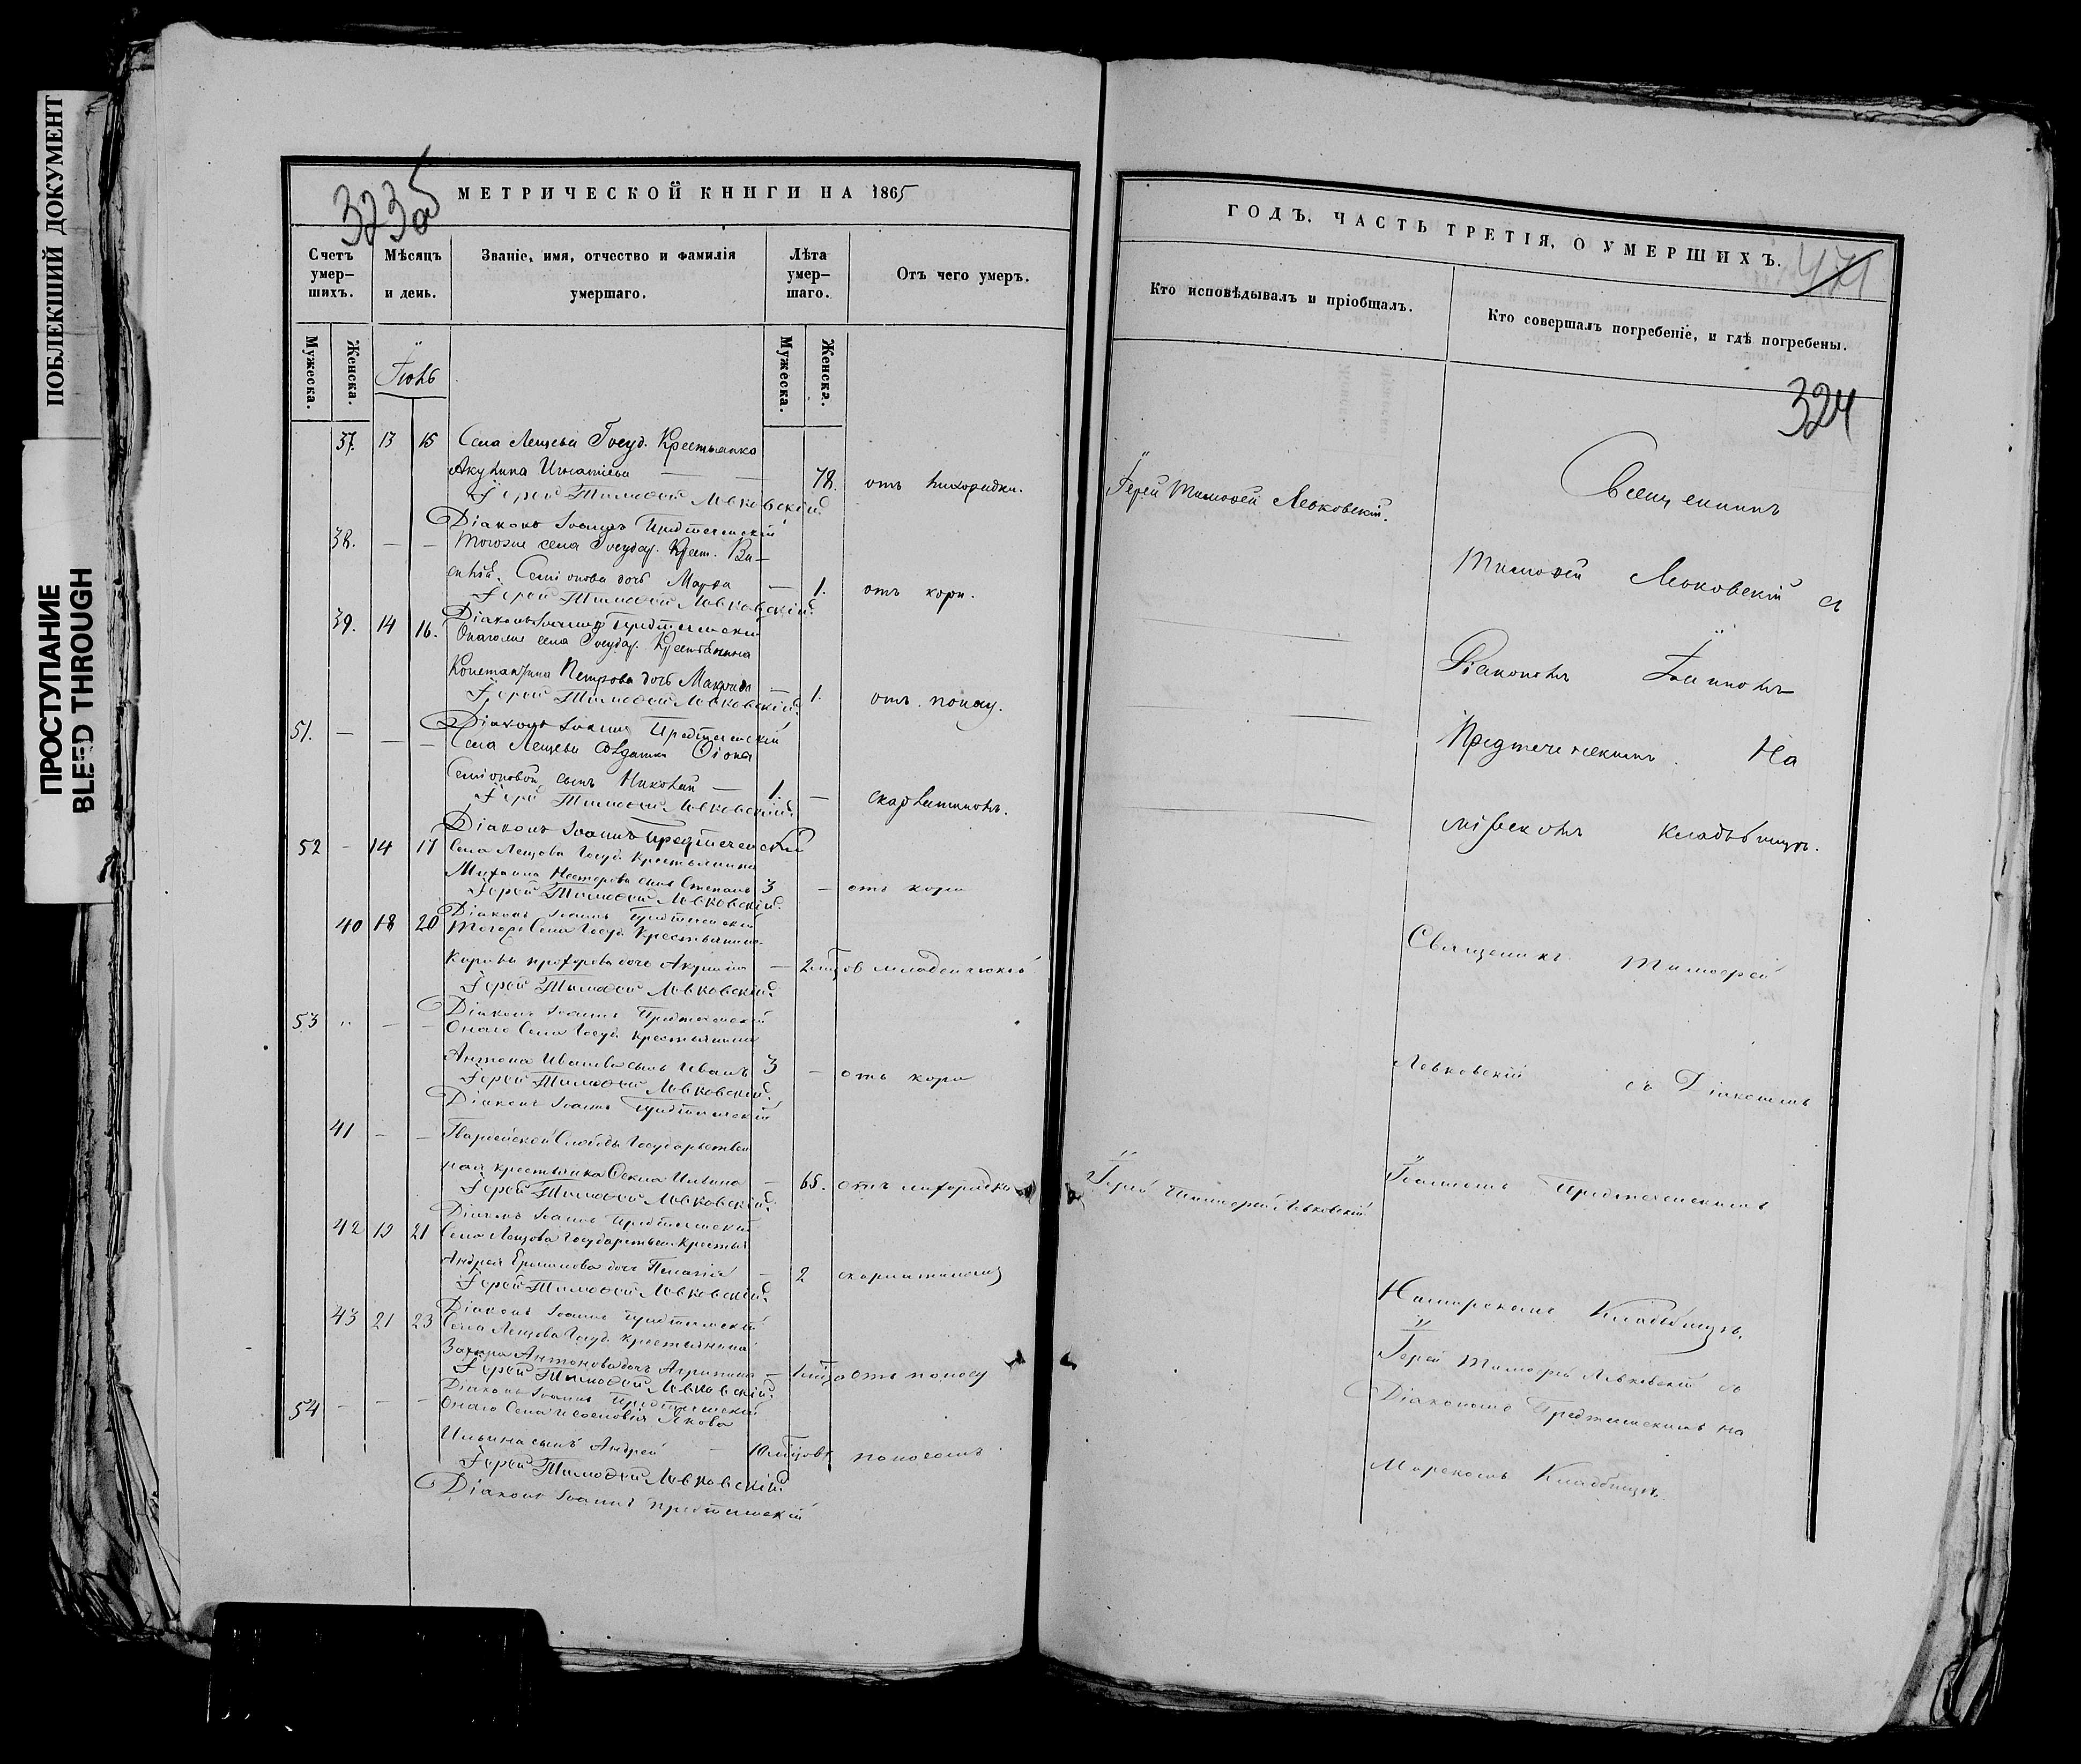 ПОБЛЕКШИЙ ДОКУМЕНТ
ПРОСТУПАНИЕ
BLEED THROUGH
323об
МЕТРИЧЕСКОЙ КНИГИ НА 1865
Счетъ умер-шихъ.
Мѣсяцъ и день.
Званіе, имя, отчество и фамилія умершаго.
Лѣта умер-шаго.
Отъ чего умеръ.
Мужеска.
Женска.
Мужеска.
Женска.
Іюль
37. 13 15 Села Лещева Госуд. Крестьянка
Акулина Игнатіева — — 78. отъ лихорадки.
Іерей Тимофей Левковскій
Діаконъ Іоаннъ Предтеченскій
38. — — Тогоже села Государ. Крест. Ва-
силія Семіонова дочь Марфа — 1. отъ кори.
Іерей Тимофей Левковскій
Діаконъ Іоаннъ Предтеченскій
39. 14 16. Онагоже села Государ. Крестьянина
Константина Петрова дочь — 1. отъ поносу.
Іерей Тимофей Левковскій
Діаконъ Іоаннъ Предтеченскій
51. — — — Села Лещева
Семіоновой сынъ Николай — 1. — скарлатиномъ.
Іерей Тимофей Левковскій
Діаконъ Іоаннъ Предтеченскій
52 — 14 17 Села Лещова Госуд. Крестьянина
Михаила Нестерова сынъ Степанъ 3 — отъ кори
Іерей Тимофей Левковскій
Діаконъ Іоаннъ Предтеченскій
40 18 20 Тогоже Села Госуд. Крестьянина
дочь Акулина — 2 младенческой
Іерей Тимофей Левковскій
Діаконъ Іоаннъ Предтеченскій
53 " — — Онаго Села Госуд. Крестьянина
Антона Иванова сынъ Иванъ 3 — отъ кори
Іерей Тимофей Левковскій
Діаконъ Іоаннъ Предтеченскій
41 — — Слободы Государствен
ная крестьянка Фекла Ильина — 65. отъ лихорадки
Іерей Тимофей Левковскій
Діаконъ Іоаннъ Предтеченскій
42 19 21 Села Лещова Государствен. Крестья
Андрея дочь Пелагія — 2 скарлатиною
Іерей Тимофей Левковскій
Діаконъ Іоаннъ Предтеченскій
43 21 23 Села Лещова Госуд. Крестьянина
Захара Антонова дочь Агрипина — отъ поносу
Іерей Тимофей Левковскій
Діаконъ Іоаннъ Предтеченскій
54 — — — Онаго Села и сословія Якова
Ильина сынъ Андрей — 10 поносомъ
Іерей Тимофей Левковскій
Діаконъ Іоаннъ Предтеченскій
ГОДЪ. ЧАСТЬ ТРЕТІЯ, О УМЕРШИХЪ.
471
Кто исповѣдывалъ и пріобщалъ.
Кто совершалъ погребеніе, и гдѣ погребены.
324
Іерей Тимофей Левковскій.
Священникъ
Тимофей Левковскій съ
Діакономъ Іоанномъ
Предтеченскимъ. На
мірскомъ кладбищѣ.
Священикъ Тимофей
Левковскій съ Діакономъ
Іерей Тимофей Левковскій
Іоанномъ Предтеченскимъ
На мирскомъ Кладбищѣ.
Іерей Тимофей Левковскій съ
Діакономъ Предтеченскимъ на
Мирскомъ Кладбищѣ.